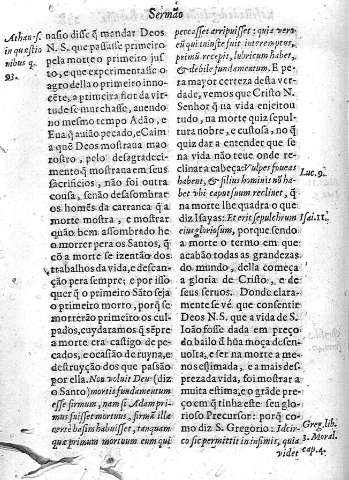 Sermão
Athan. s.
in quæstio
nibus q.
93.
nasio disse q̃ mandar Deos
N. S. que passasse primeiro
pela morte o primeiro jus-
to, e que experimentasse o
agro della o primeiro inno-
cẽte, a primeira flor da vir-
tude se murchasse, auendo
no mesmo tempo Adão, e
Eua q̃ auião pecado, e Caim
a quẽ Deos mostraua mao
rostro, pelo desagradeci-
mento q̃ mostraua em seus
sacrificios, não foi outra
cousa, senão desassombrar
os homẽs da carranca q̃ a
morte mostra, e mostrar
quão bem assombrado he
o morrer pera os Santos, q̃
cõ a morte se izentão dos
trabalhos da vida, e descan-
ção pera sempre; e por isso
quer q̃ o primeiro Sãto seja
o primeiro morto, porq̃ se
morrerão primeiro os cul-
pados, cuydaramos q̃ sẽpre
a morte era castigo de pe-
cados, e ocasião de ruyna, e
destruyção dos que passão
por ella. Non voluit Deus (diz
o Santo) mortis fundamentum
esse firmum, nam si Adam pri-
mus fuisset mortuus, firmã illa
certè basim habuisset, tanquam
quæ primum mortuum eum qui
peccasset arripuisset: quia verò
eũ qui iniuste fuit interemptus,
primũ recepit, lubricum habet,
& debile fundamentum. E pe-
ra mayor certeza desta ver-
dade, vemos que Christo N.
Senhor q̃ na vida enjeitou
tudo, na morte quiz sepul-
tura nobre, e custosa, no q̃
quiz dar a entender que se
na vida não teue onde re-
clinar a cabeça: Vulpes foueas
habent, & filius hominis nõ ha-
bet vbi caput suum reclinet, q̃
na morte lhe quadra o que
diz Isayas: Et erit sepulchrum
eius gloriosum, porque sendo
a morte o termo em que
acabão todas as grandezas
do mundo, della começa
a gloria de Christo, e de
seus seruos. Donde clara-
mente se vé que consentir
Deos N. S. que a vida de S.
João fosse dada em preço
do bailo d hũa moça desen-
uolta, e ser na morte a me-
nos estimada, e a mais des-
prezada vida, foi mostrar a
muita estima, e o grãde pre-
ço em q̃ tinha este seu glo-
rioso Precursor: porq̃ co-
mo diz S. Gregorio: Idcir-
co sic permittit in infimis, quia
videt
Luc. 9.
Isai. 11.
Greg. lib.
3. Moral.
cap. 4.